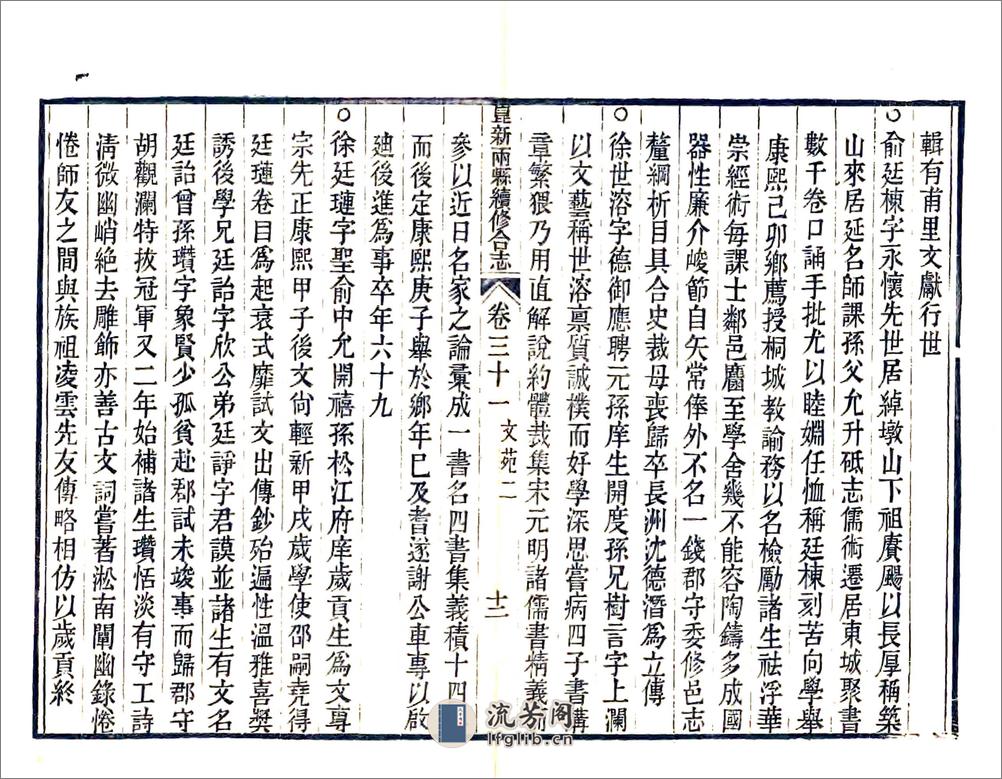 輯有甫里文獻行世
○俞廷棟字永懷先世居綽墩山下祖賡颺以長厚稱築
山來居延名師課孫父允升砥志儒術遷居東城聚書
數千卷口誦手批尤以睦婣任恤稱廷棟刻苦向學舉
康熙己卯鄉薦授桐城教諭務以名檢勵諸生祛浮華
崇經術每課士鄰邑麕至學舍幾不能容陶鑄多成國
器性廉介峻節自矢常俸外不名一錢郡守委修邑志
釐綱析目具合史裁母喪歸卒長洲沈德潛爲立傳
○徐世溶字德御應聘元孫庠生開度孫兄樹言字上瀾
以文藝稱世溶禀質誠樸而好學深思嘗病四子書講
章繁猥乃用直解說約體裁集宋元明諸儒書精義而
參以近日名家之論彙成一書名四書集義積十四年
而後定康熙庚子舉於鄉年已及耆遂謝公車專以啟
廸後進爲事卒年六十九
○徐廷璉字聖俞中允開禧孫松江府庠歲貢生爲文專
宗先正康熙甲子後文尙輕新甲戌歲學使邵嗣堯得
廷璉卷目爲起衰式靡試文出傳鈔殆遍性溫雅喜奬
誘後學兄廷詒字欣公弟廷諍字君謨並諸生有文名
廷詒曾孫瓚字象賢少孤貧赴郡試未竣事而歸郡守
胡觀瀾特拔冠軍又二年始補諸生瓚恬淡有守工詩
淸微幽峭絶去雕飾亦善古文詞嘗著淞南闡幽錄惓
惓師友之間與族祖凌雲先友傳略相仿以歲貢終
崑新兩縣續修合志
卷三十一
文苑二
十二
流芳阁
lfglib.cn